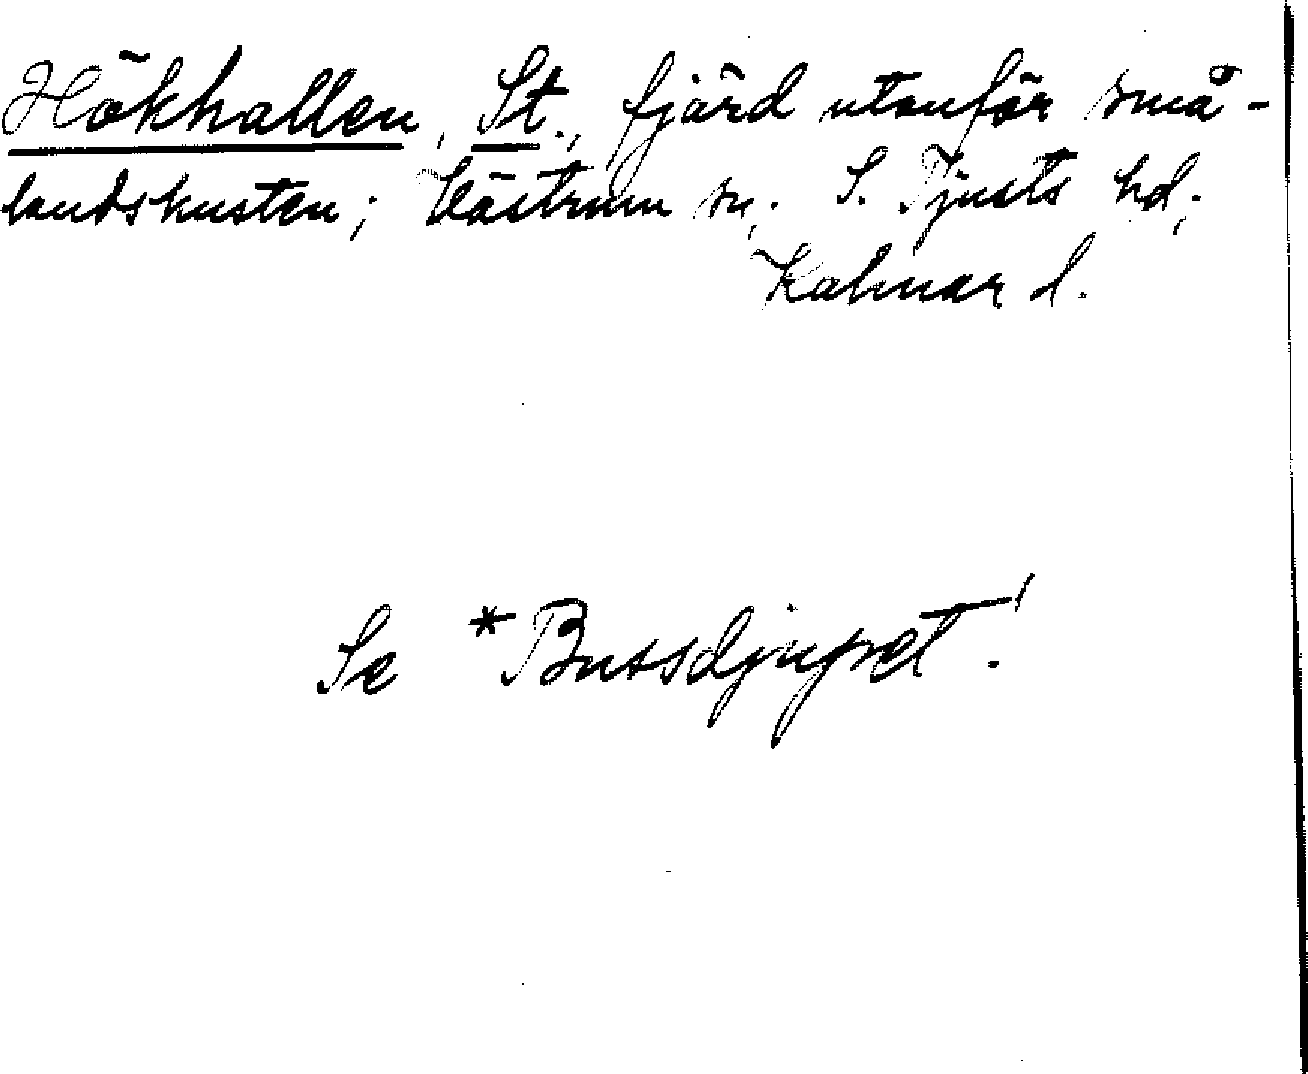 Hökhallen, St., fjärd utanför små-
landskusten; Västrum sn; S. Tjusts hd;
Kalmar l.
Se *Bussdjupet!